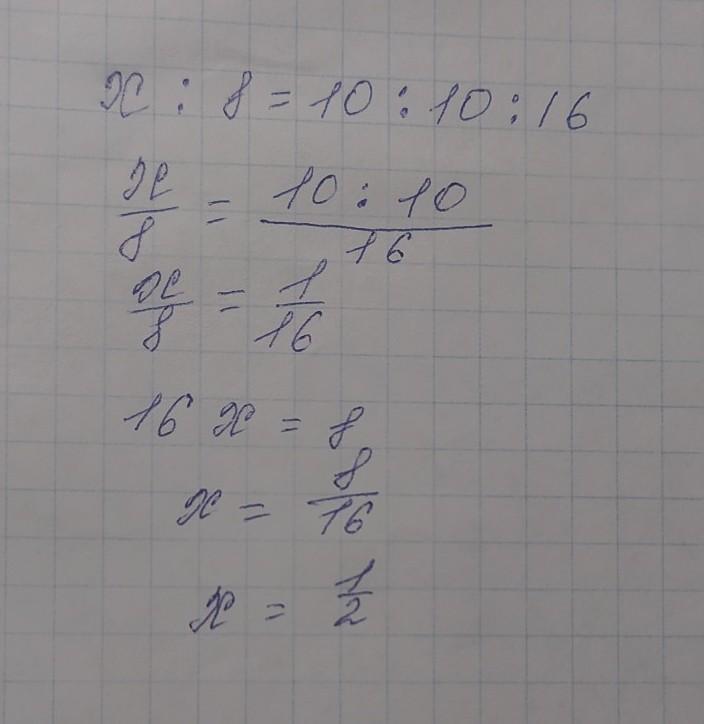 x : 8 = 10 : 10 : 16
x/8 = 10 : 10/16
x/8 = 1/16
16 x = 8
x = 8/16
x = 1/2